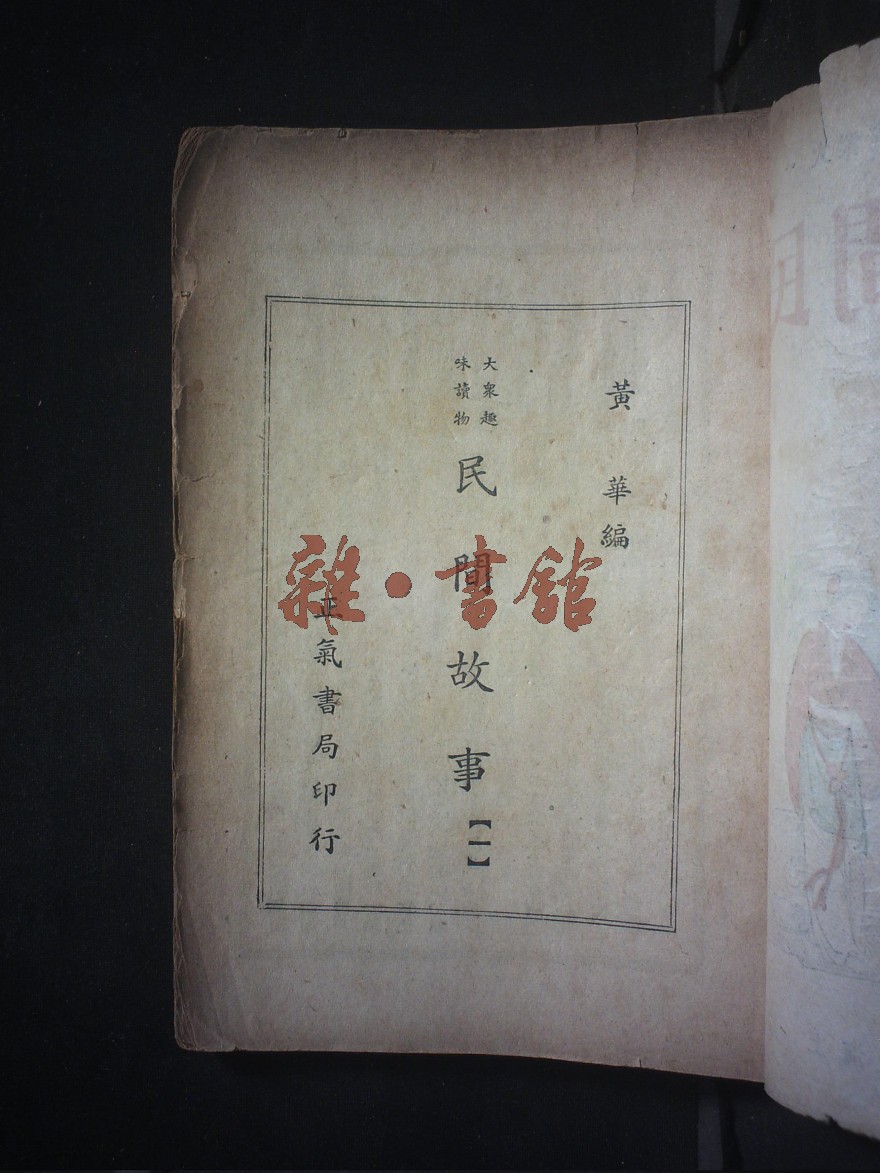 黃華編
大衆趣
味讀物
民間故事【一】
正氣書局印行
雜·書館